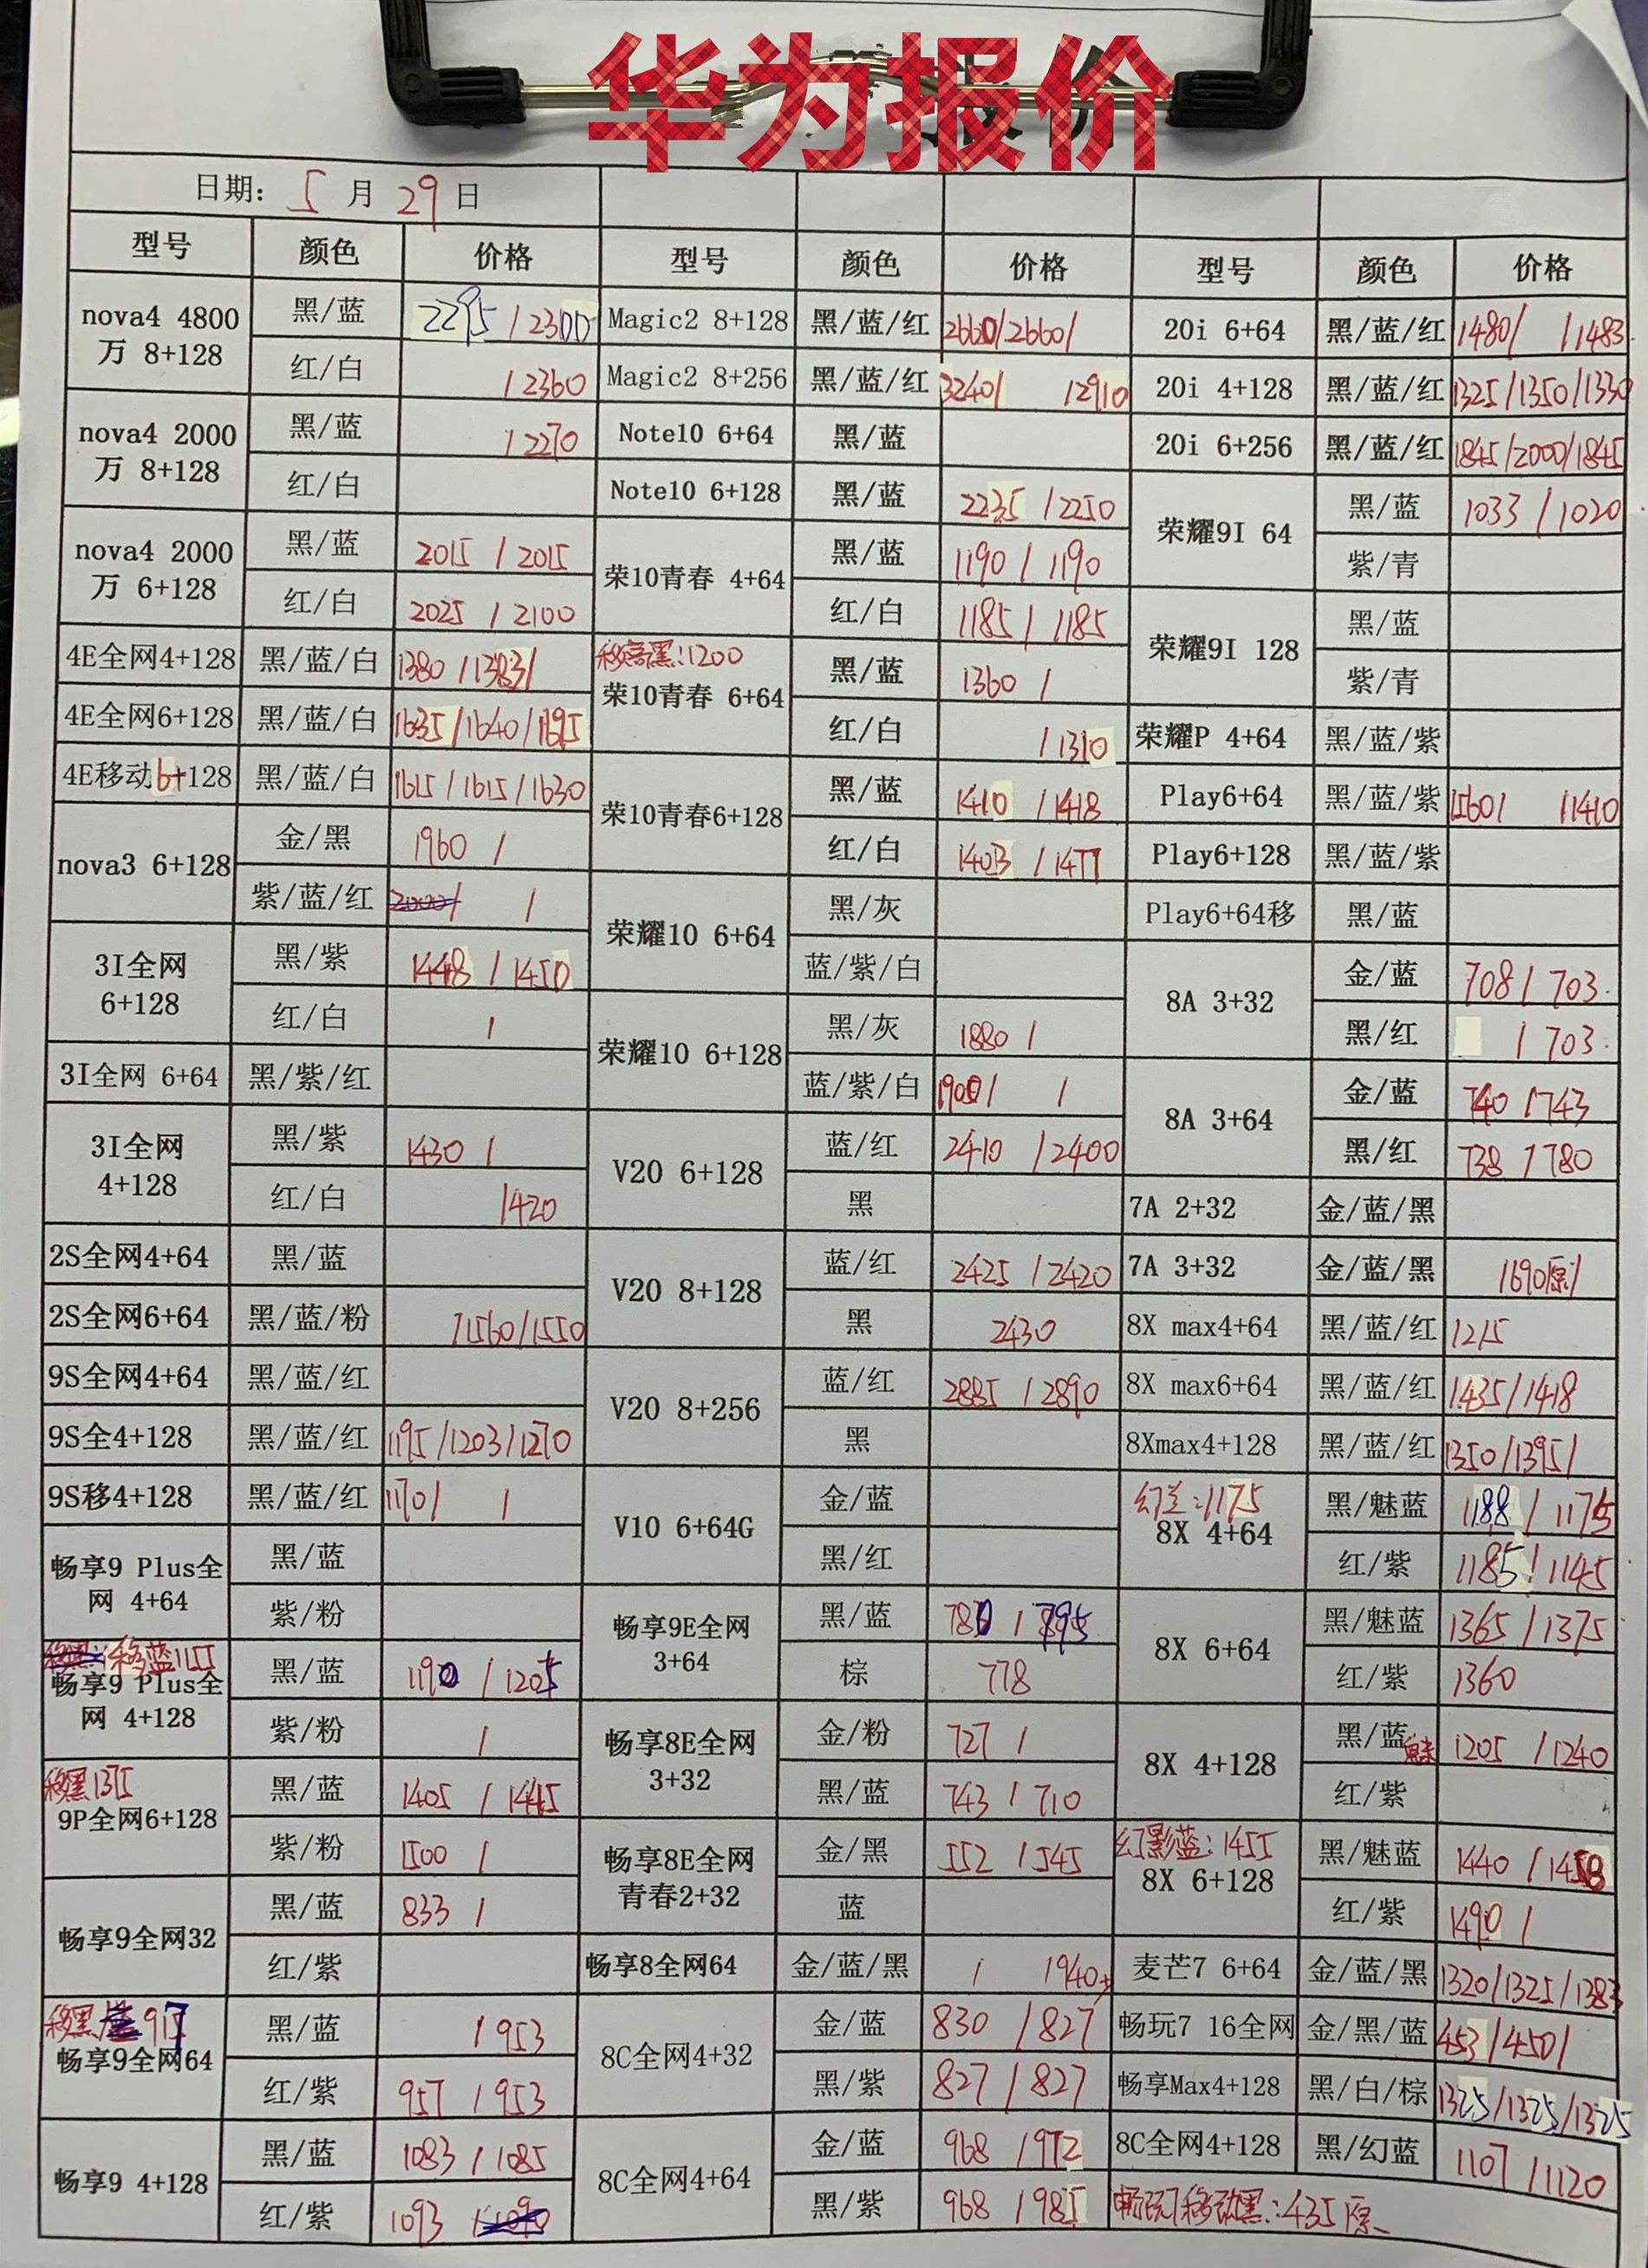 华为报价
日期: 5 月 29 日
型号 颜色 价格 型号 颜色 价格 型号 颜色 价格
nova4 4800万 8+128 黑/蓝 2295/2300 Magic2 8+128 黑/蓝/红 2660/2660/ 20i 6+64 黑/蓝/红 1480/ /1483
红/白 /2360 Magic2 8+256 黑/蓝/红 3240/ /2910 20i 4+128 黑/蓝/红 1325/1350/1330
nova4 2000万 8+128 黑/蓝 /2270 Note10 6+64 黑/蓝 20i 6+256 黑/蓝/红 1845/2000/1845
红/白 Note10 6+128 黑/蓝 2235/2250 荣耀9I 64 黑/蓝 1033/1020
nova4 2000万 6+128 黑/蓝 2015/2015 荣10青春 4+64 黑/蓝 1190/1190 紫/青
红/白 2025/2100 红/白 1185/1185 荣耀9I 128 黑/蓝
4E全网4+128 黑/蓝/白 1380/1383/ 荣10青春 6+64 :1200 黑/蓝 1360/ 紫/青
4E全网6+128 黑/蓝/白 1635/1640/1695 红/白 /1310 荣耀P 4+64 黑/蓝/紫
4E移动6+128 黑/蓝/白 1615/1615/1630 荣10青春6+128 黑/蓝 1410/1418 Play6+64 黑/蓝/紫 1560/ /1410
nova3 6+128 金/黑 1960/ 红/白 1403/1477 Play6+128 黑/蓝/紫
紫/蓝/红 / / 荣耀10 6+64 黑/灰 Play6+64移 黑/蓝
3I全网 6+128 黑/紫 1448/1450 蓝/紫/白 8A 3+32 金/蓝 708/703
红/白 / 荣耀10 6+128 黑/灰 1880/ 黑/红 /703
3I全网 6+64 黑/紫/红 蓝/紫/白 1900/ / 8A 3+64 金/蓝 740/743
3I全网 4+128 黑/紫 1430/ V20 6+128 蓝/红 2410/2400 黑/红 738/780
红/白 1420 黑 7A 2+32 金/蓝/黑
2S全网4+64 黑/蓝 V20 8+128 蓝/红 2425/2420 7A 3+32 金/蓝/黑 /690原/
2S全网6+64 黑/蓝/粉 /1560/1550 黑 2430 8X max4+64 黑/蓝/红 1215
9S全网4+64 黑/蓝/红 V20 8+256 蓝/红 2885/2890 8X max6+64 黑/蓝/红 1435/1418
9S全4+128 黑/蓝/红 1195/1203/1270 黑 8Xmax4+128 黑/蓝/红 1350/1395/
9S移4+128 黑/蓝/红 1170/ / V10 6+64G 金/蓝 8X 4+64 :1175 黑/魅蓝 1188/1175
畅享9 Plus全网 4+64 黑/蓝 黑/红 红/紫 1185/1145
紫/粉 畅享9E全网 3+64 黑/蓝 780/795 8X 6+64 黑/魅蓝 1365/1375
移蓝1155
畅享9 Plus全网 4+128 黑/蓝 1190/1205 棕 778 红/紫 1360
紫/粉 / 畅享8E全网 3+32 金/粉 727/ 8X 4+128 黑/蓝魅 1205/1240
移黑1375
9P全网6+128 黑/蓝 1405/1445 黑/蓝 743/710 红/紫
紫/粉 1500/ 畅享8E全网 青春2+32 金/黑 552/545 幻影蓝:1455 8X 6+128 黑/魅蓝 1440/1458
畅享9全网32 黑/蓝 833/ 蓝 红/紫 1490/
红/紫 畅享8全网64 金/蓝/黑 / 1940 麦芒7 6+64 金/蓝/黑 1320/1325/1383
移黑 917
畅享9全网64 黑/蓝 /953 8C全网4+32 金/蓝 830/827 畅玩7 16全网 金/黑/蓝 453/450/
红/紫 957/953 黑/紫 827/827 畅享Max4+128 黑/白/棕 1325/1325/1325
畅享9 4+128 黑/蓝 1083/1085 8C全网4+64 金/蓝 968/972 8C全网4+128 黑/幻蓝 1107/1120
红/紫 1093/ 黑/紫 968/985 畅玩7移动黑:435原